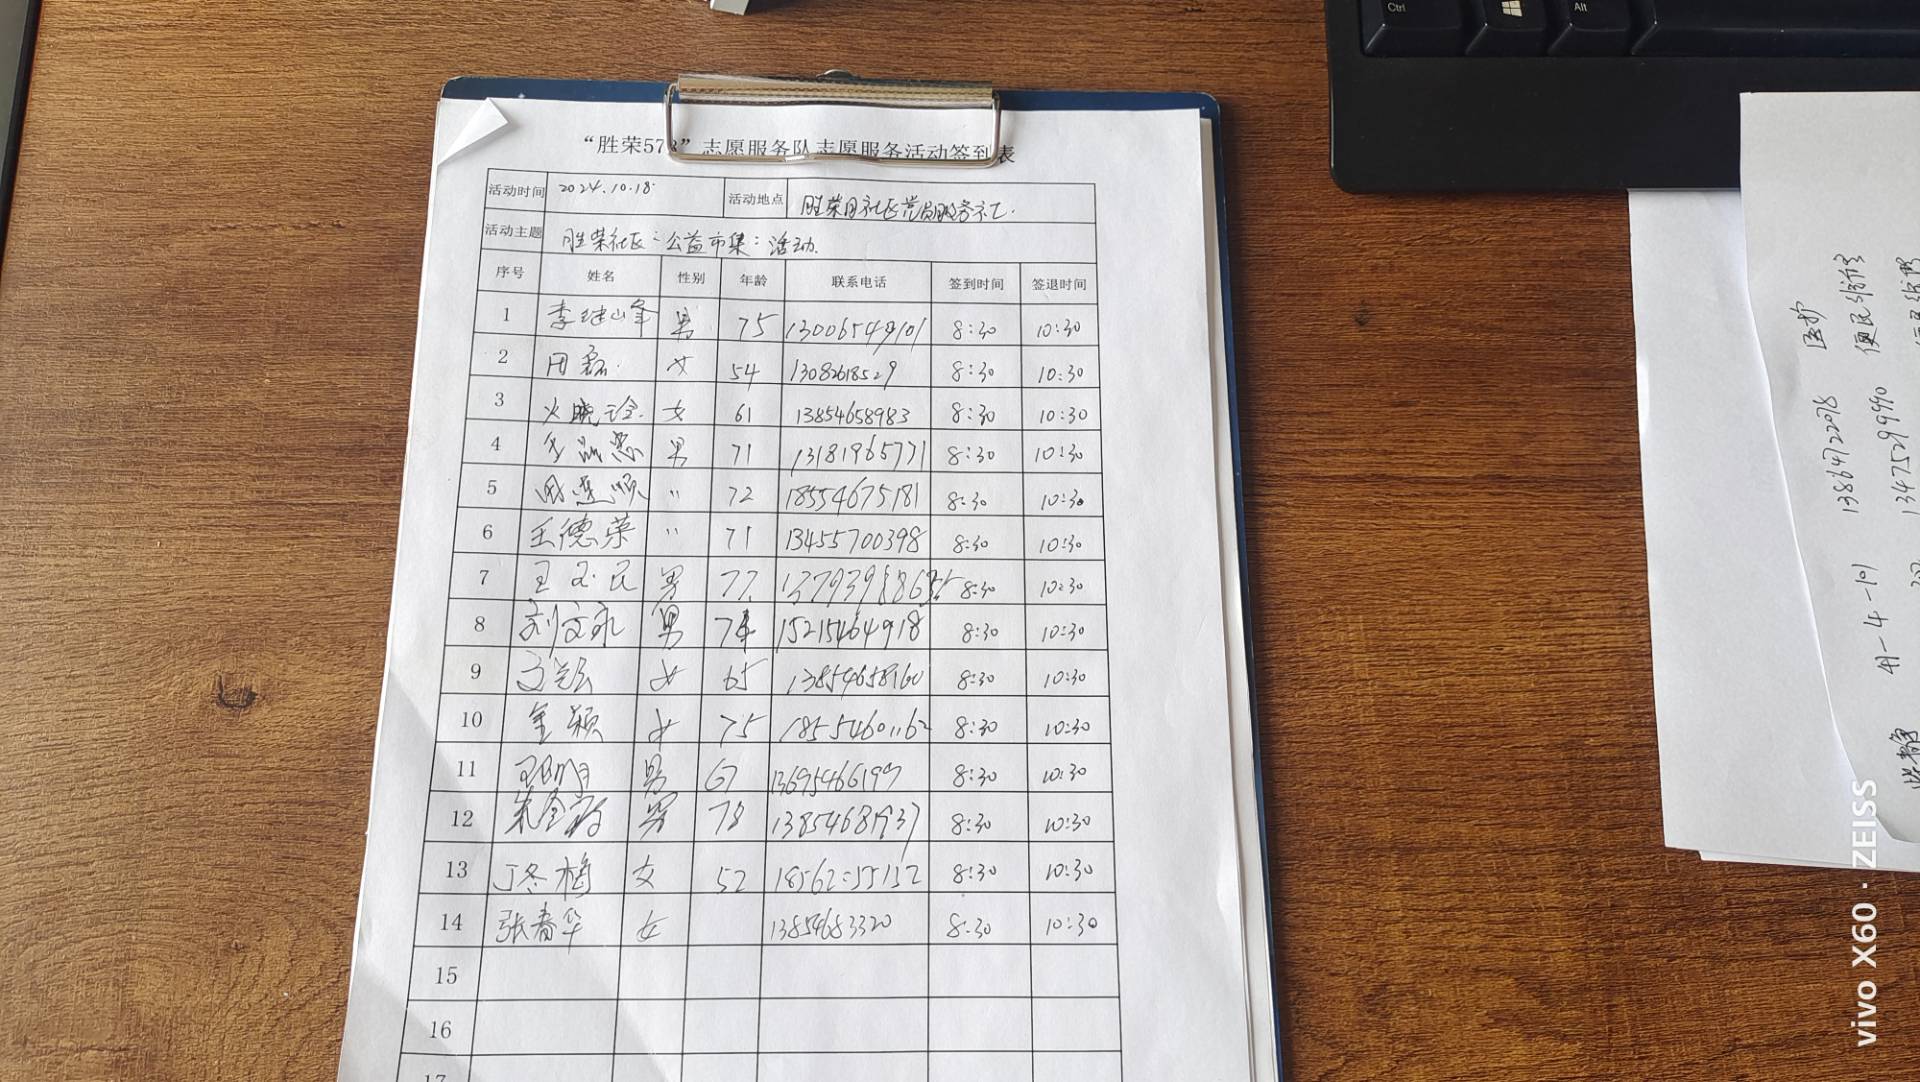 “胜荣578”志愿服务队志愿服务活动签到表
活动时间 2024.10.18 活动地点 胜荣社区党员服务
活动主题 胜荣社区“公益市集”活动.
序号 姓名 性别 年龄 联系电话 签到时间 签退时间
1 李继峰 男 75 13006549101 8:30 10:30
2 周磊 女 54 13082618529 8:30 10:30
3 火晓玲 女 61 13854658983 8:30 10:30
4 男 71 13181965771 8:30 10:30
5 〃 72 18554675181 8:30 10:30
6 王德荣 〃 71 13455700398 8:30 10:30
7 王玉民 男 77 8:30 10:30
8 刘文永 男 74 15215464918 8:30 10:30
9 女 65 13854658160 8:30 10:30
10 金颖 女 75 18554601162 8:30 10:30
11 男 67 8:30 10:30
12 男 78 13854681937 8:30 10:30
13 丁冬梅 女 52 8:30 10:30
14 张春华 女 13854683320 8:30 10:30
15
16
17
Ctrl
Alt
医护
13864722078
便民维修
13475299990
41-4-101
vivo X60 · ZEISS